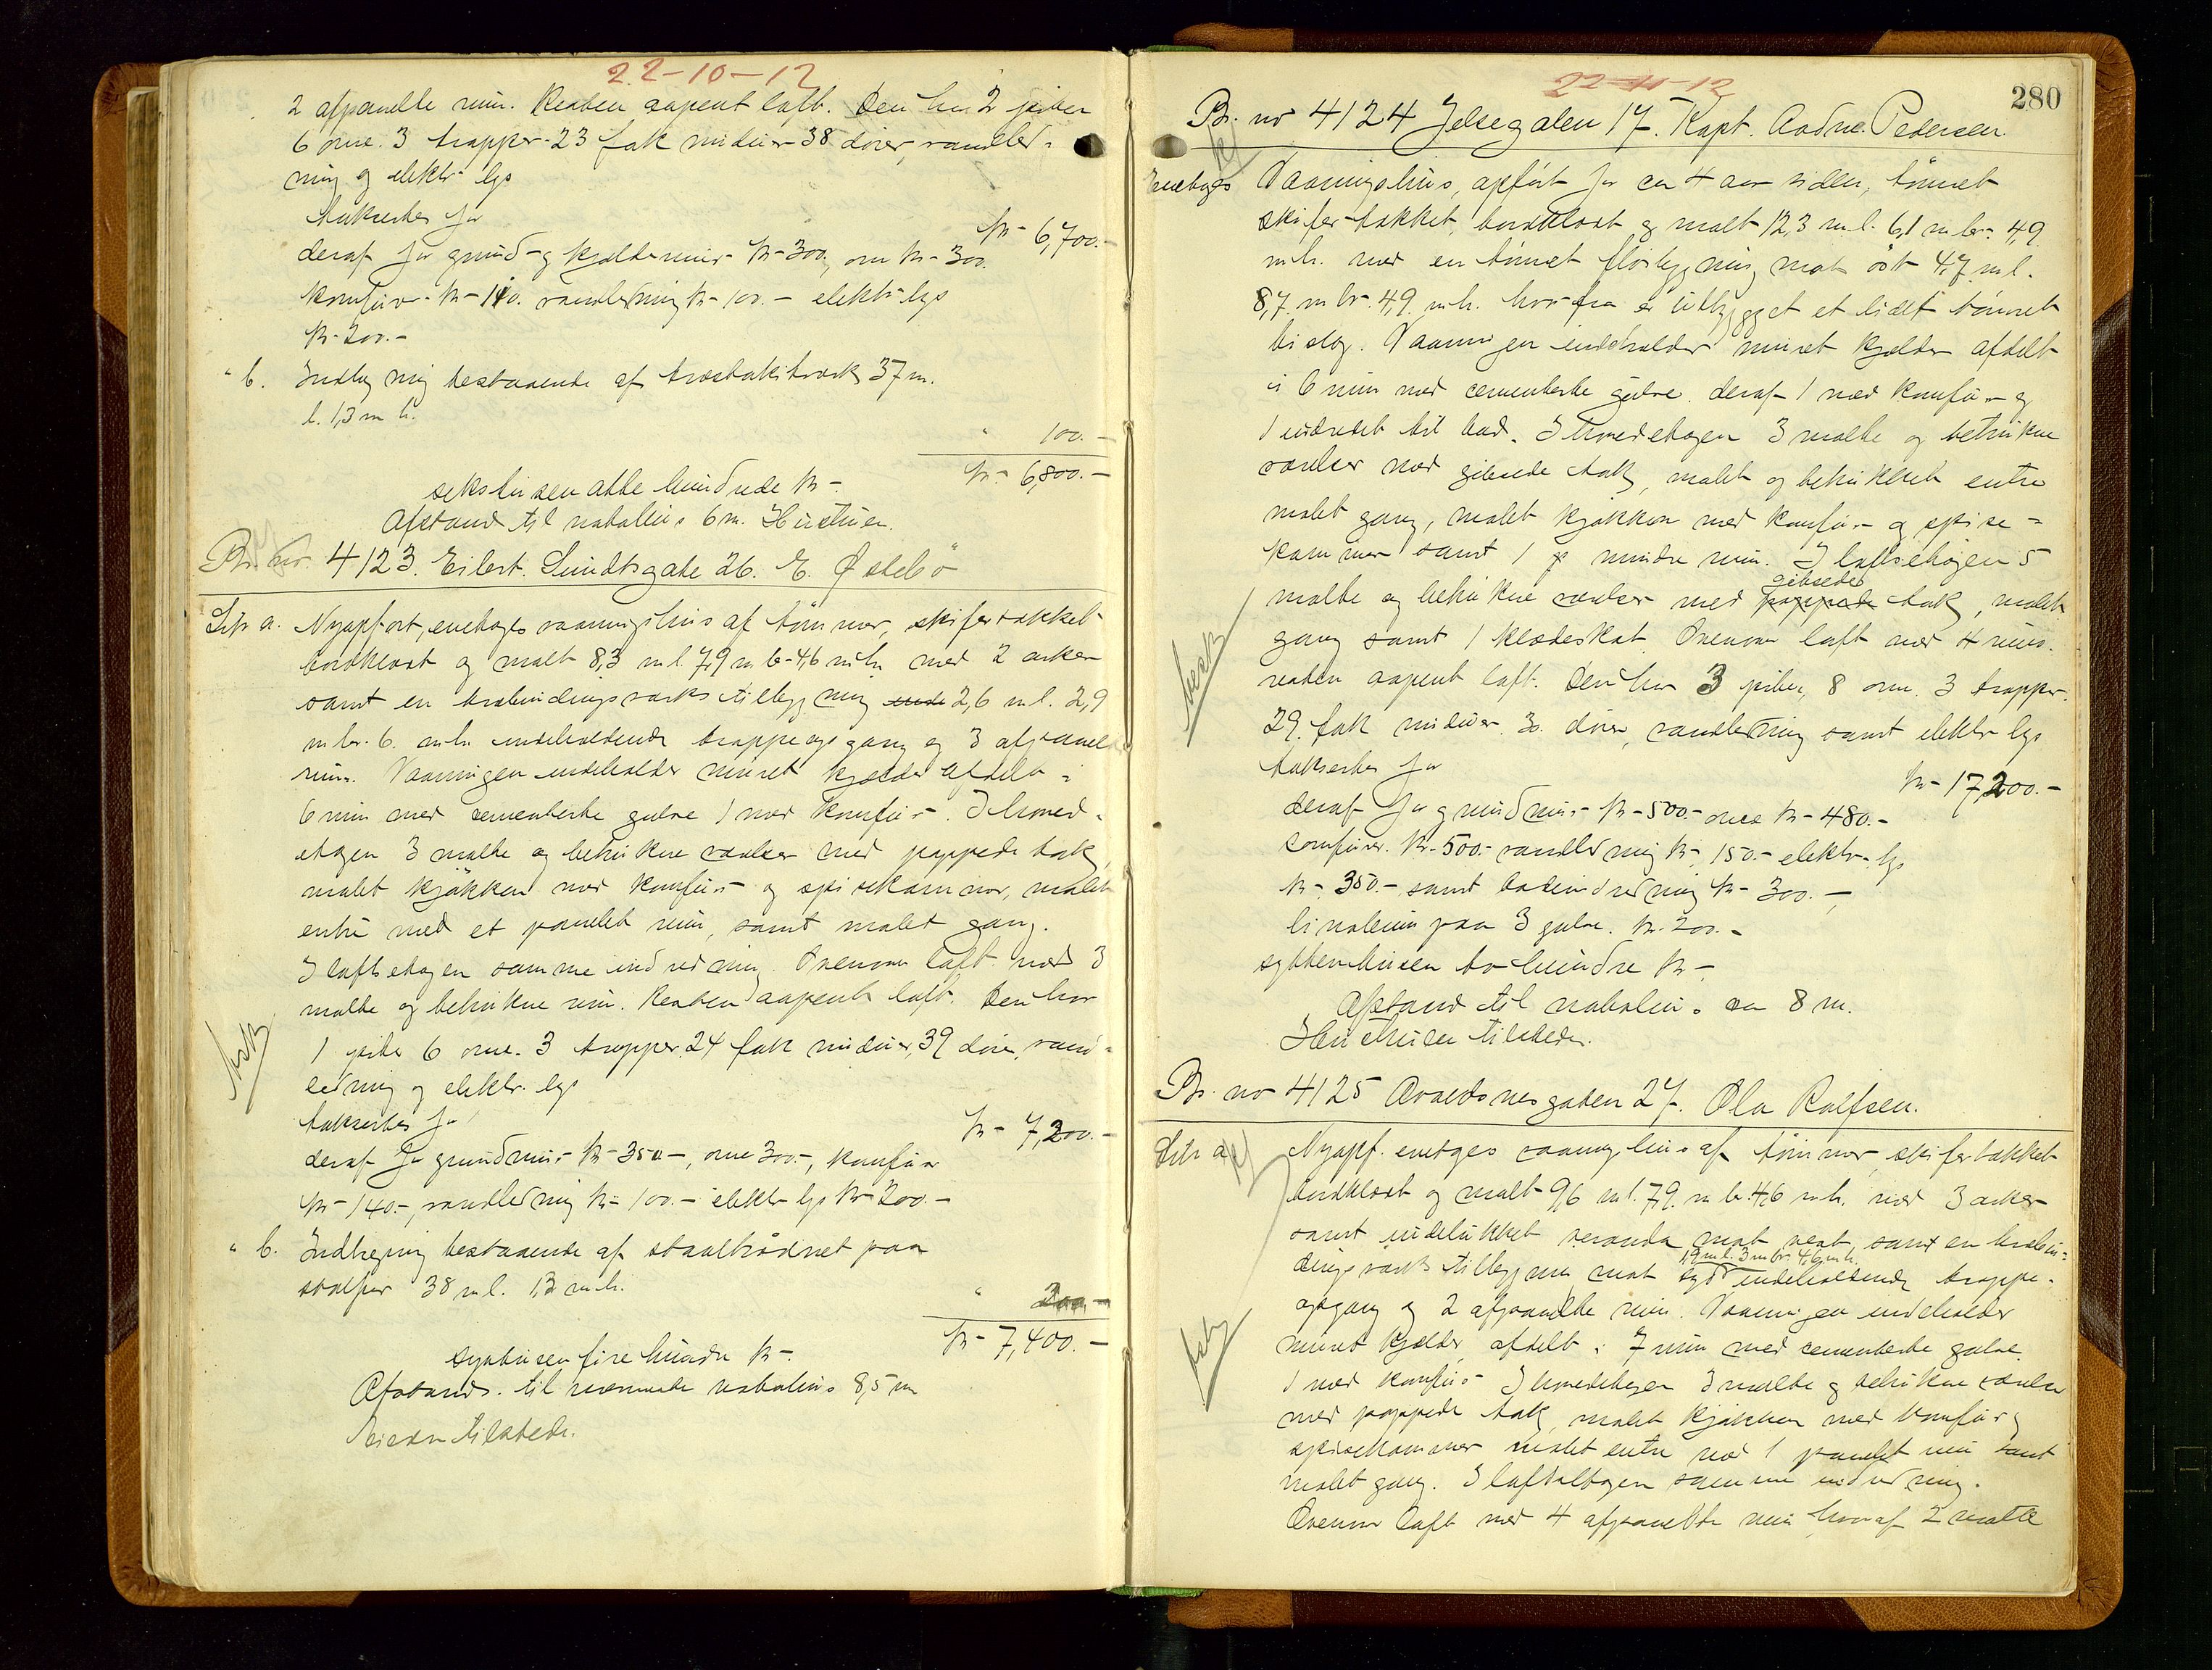 22-10-12
2 afpanelte rum. Resten aapent loft. Den har 2 piber
6 ovne. 3 trapper 23 fak vinduer 38 dører, vandled-
ning og elektr lys
takseres for
kr- 6,700.-
deraf for grund- og kjeldermur kr-300, ovne kr-300.
komfurer kr-110. vandledning kr-100.- elektr lys
kr-200.-
" b. Indhegning bestaaende af træstakitværk 37 m.
l. 1,3 m h.
" 100.-
kr- 6,800.-
sekstusen otte hundrede kr-.
Afstand til nabohus 6 m. Hustruen.
Br. nr. 4123. Eilert Sundtsgate 26. E. Østebö
Litr a. Nyopført, enetages vaaningshus af tømmer, skifertækket
bordklædt og malt 8,3 m l. 7,9 m br 4,6 m h. med 2 arker
samt en træbindingsværks tilbygning 2,6 m l. 2,9
m br. 6. m h. indeholdende trappeopgang og 3 afpanelte
rum. Vaaningen indeholder muret kjelder afdelt i
6 rum med cementerte gulve 1 med komfur. I 1ste
etagen 3 malte og betrukne værelser med pappede tak,
malet kjøkken med komfur og spisekammer, malet
entré med et panelet rum, samt malet gang.
I loftsetagen samme indredning. Ovenom loft med 3
malte og betrukne rum. Resten aapent loft. Den har
1 pibe 6 ovne. 3 trapper, 24 fak vinduer, 39 døre, vand-
ledning og elektr. lys
takseres for
kr- 7,200.-
deraf for grundmur kr-350-, ovne 300-, komfur
kr-140.-, vandledning kr-100.- elektr lys kr-200.-
" b. Indhegning bestaaende af staaltraadnet paa
stolper 38 m l. 1,3 m h.
" 200-
kr- 7,400.-
syvtusen fire hundre kr-.
Afstand til nærmeste nabohus 8,5 m
Eieren tilstede.
22-10-12
280
Br. nr 4124 Jelsegaten 17. Kapt. Aadne Pedersen
Enetages Vaaningshus, opført for ca 4 aar siden, tømret
skifertækket, bordklædt og malt 12,3 m l. 6,1 m br. 4,9
m h. med en tømret fløibygning mot öst 4,7 m l.
8,7 m br. 4,9 m h. hvorfra er utbygget et lidet tømret
bislag. Vaaningen indeholder muret kjelder afdelt
i 6 rum med cementerte gulve. deraf 1 med komfur og
1 indredet til bad. I 1ste etagen 3 malte og betrukne
værelser med gibsede tak, malet og betrukket entre
malet gang, malet kjøkken med komfur og spise-
kammer samt 1 mindre rum. I loftsetagen 5
malte og betrukne værelser med pappede gibsede tak, malet
gang samt 1 klædeskab. Ovenom loft med 4 rum.
resten aapent loft. Den har 3 piber, 8 ovne. 3 trapper
29 fak vinduer. 30. dører, vandledning samt elektr lys
takseres for
kr- 17,200.-
deraf for grundmur kr-500.- ovne kr-480.-
komfurer. kr-500.- vandledning kr- 150.- elektr. lys
kr- 350.- samt badeindredning kr- 300.-,
linoleum paa 3 gulve. kr. 200.-
syttentusen to hundre kr-
Afstand til nabohus ca 8 m.
Hustruen tilstede.
Br. nr 4125 Avaldsnesgaten 27. Ola Rolfsen.
Litr a. Nyopf. enetages vaaningshus af tømmer, skifertækket
bordklædt og malt 9,6 m l. 7,9. m br 4,6 m h. med 3 arker
samt indelukket veranda mot vest samt en træbin-
dingsværks tilbygning mot syd 1,9 m l. 3 m br 4,6 m h. indeholdende trappe-
opgang og 2 afpanelte rum. Vaaningen indeholder
muret kjelder afdelt i 7 rum med cementerte gulve
1 med komfur. I 1ste etagen 3 malte og betrukne værelser
med pappede tak, malet kjøkken med komfur og
spisekammer malet entre med 1 panelet rum samt
malet gang. I loftsetagen samme indredning.
Ovenom loft med 4 afpanelte rum hvoraf 2 malte